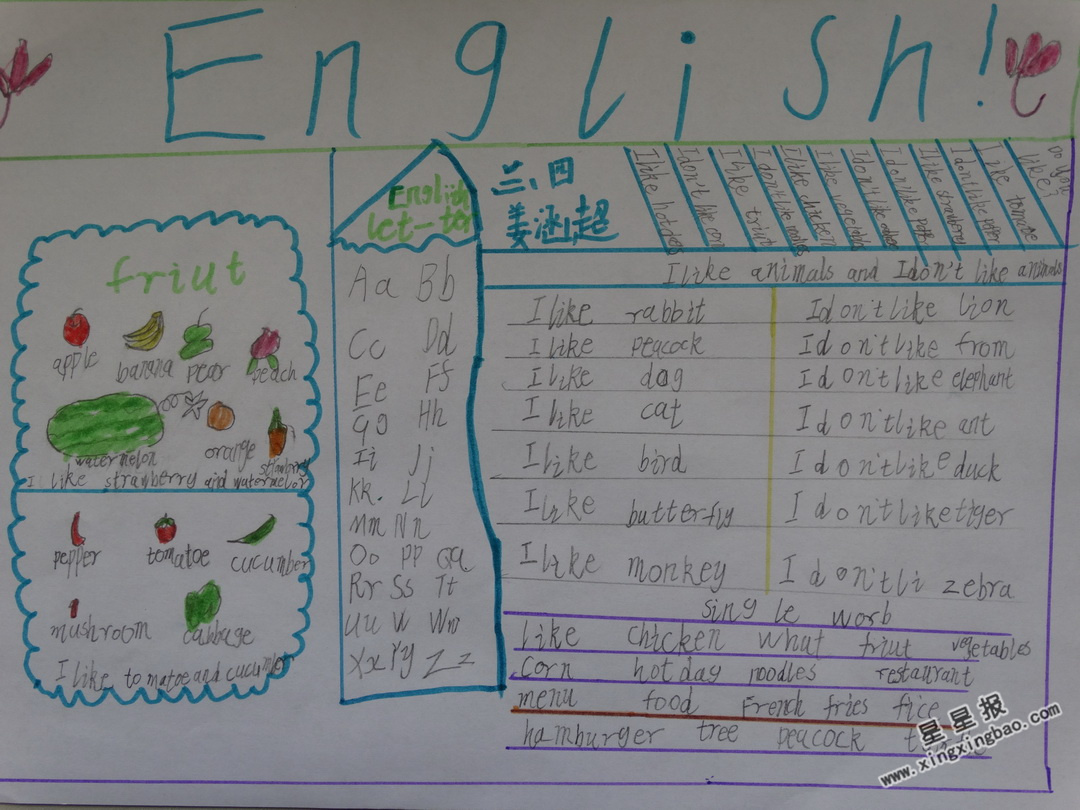 English!
friut
apple banana pear peach
watermelon orange
I like strawberry and watermelor
pepper tomatoe cucumber
mushroom cabbage
I like tomatoe and cucumber
English
let-ter
Aa Bb
Cc Dd
Ee Ff
Gg Hh
Ii Jj
Kk. Ll
Mm Nn
Oo Pp Qq
Rr Ss Tt
Uu Ww
Xx Yy Zz
三、四
姜涵超
I like hotdogs
I don't like corn
I like friut
I don't like noodles
I like chicken
I like vegetables
I don't like
I don't like
I like strawberry
I don't like pepper
I like tomatoe
Do you like?
I like animals and I don't like animals
I like rabbit I don't like lion
I like peacock I don't like from
I like dog I don't like elephant
I like cat I don't like ant
I like bird I don't like duck
I like butterfly I don't like tiger
I like monkey I don't li zebra
single worb
like chicken what friut vegetables
corn hotday noodles restaurant
menu food French fries fice
hamburger tree peacock
星星报
www.xingxingbao.com